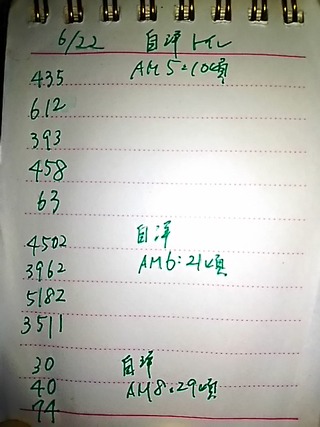 6/22 自洋トイレ
435 AM5:10頃
612
393
458
63
4502 自洋
3962 AM6:21頃
5182
3511
30 自洋
40 AM8:29頃
74